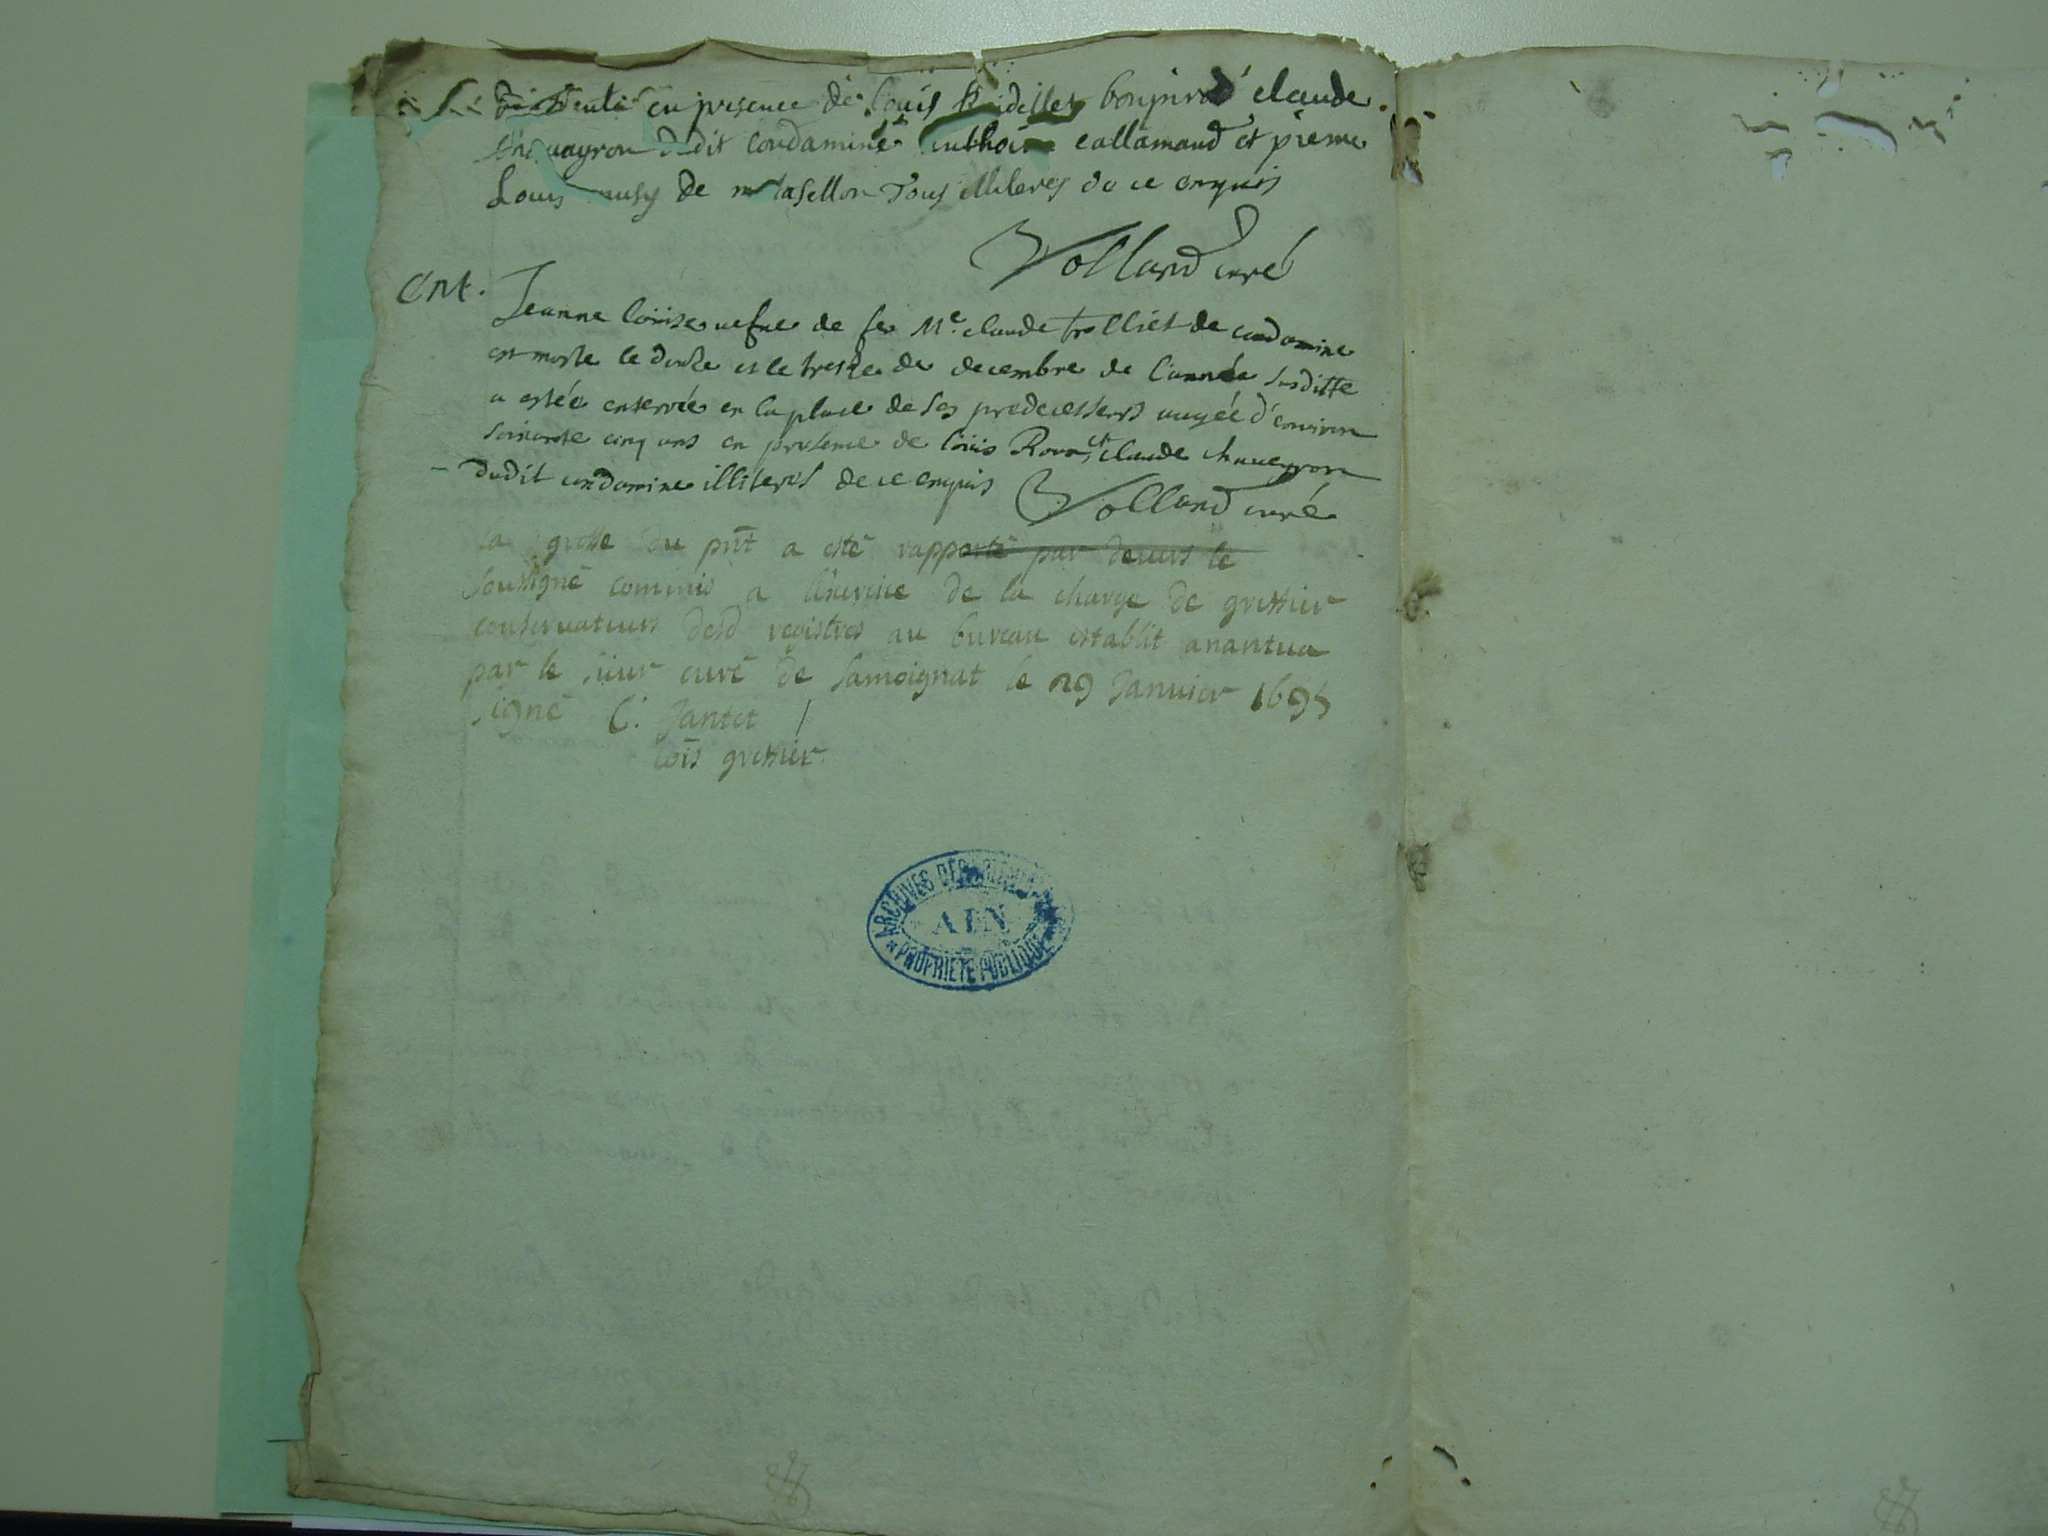 en presence de Louis bonpirod claude
dudit condamine Anthoine callamand et pierre
Louis de Matafellon Tous illiteres de ce enquis
Volland curé
Ent.
Jeanne loüise vefve de feu Me. claude trolliet de condamine
est morte le douze et le treize de decembre de l'année Susditte
a estée enterrée en la place de ses predecesseurs aagée d'environ
soixante cinq ans en presence de loüis Rova et claude chaveyron
dudit condamine illiteres de ce enquis Volland curé
la grosse du pnt a este rapporté par devers le
soussigné commis a lexercice de la charge de greffier
conservateurs desd registres au bureau establit anantua
par le sieur curé de Samoignat le 29 Janvier 1695
signé C. Jantet
cois greffier
ARCHIVES DEPARTEMENTALES
AIN
PROPRIETE PUBLIQUE